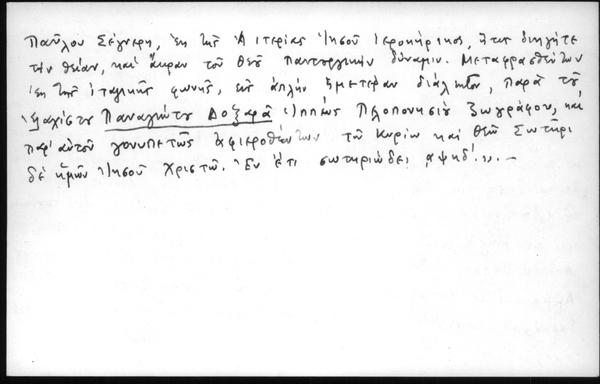 Παύλου Σέγνερη, ἐκ τῆς Ἑτερίας Ἰησοῦ ἱεροκήρικος, ἥτις διηγῆτε
τὴν θείαν, καὶ ἄκραν τοῦ Θεοῦ παντουργικὴν δύναμιν. Μεταφρασθέντων
ἐκ τῆς ἰταλικῆς φωνῆς, εἰς ἁπλὴν ἡμετέραν διάλεκτον, παρὰ τοῦ
ἐλαχίστου Παναγιώτου Δοξαρᾶ ἱππέως Πελοπονησίου ζωγράφου, καὶ
παρ' αὐτοῦ γονυπετῶς ἀφιεροθέντων τῶ Κυρίω καὶ Θεῶ Σωτῆρι
δὲ ἡμῶν Ἰησοῦ Χριστῶ. Ἐν ἔτι σωτηριώδει αψηδ'.».—